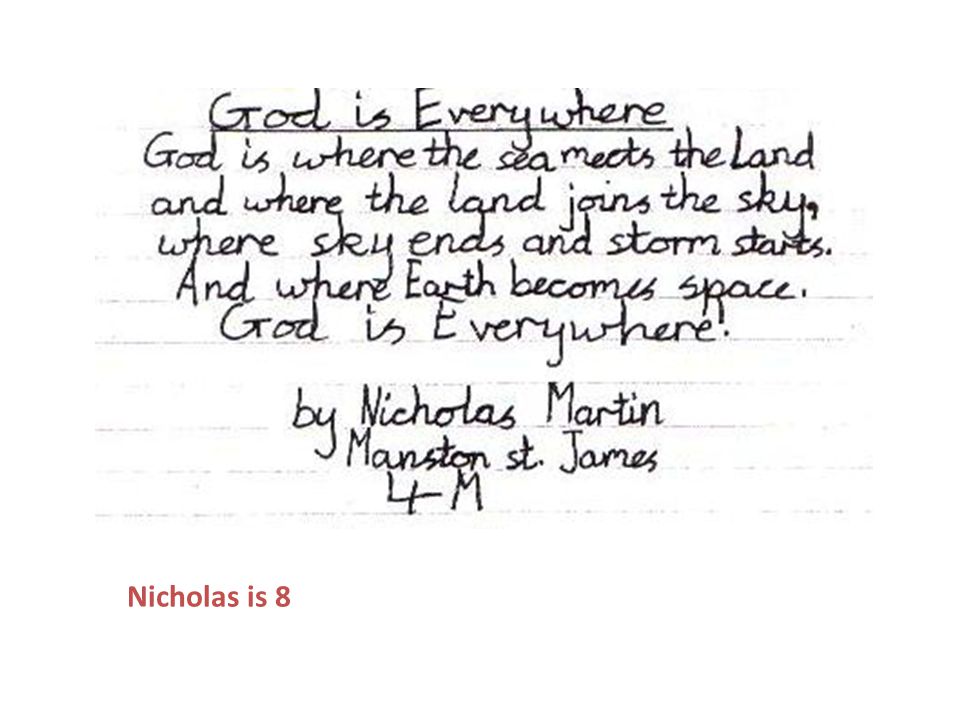 God is Everywhere
God is where the sea meets the Land
and where the land joins the sky,
where sky ends and storm starts.
And where Earth becomes space.
God is Everywhere!
by Nicholas Martin
Manston st. James
4M
Nicholas is 8